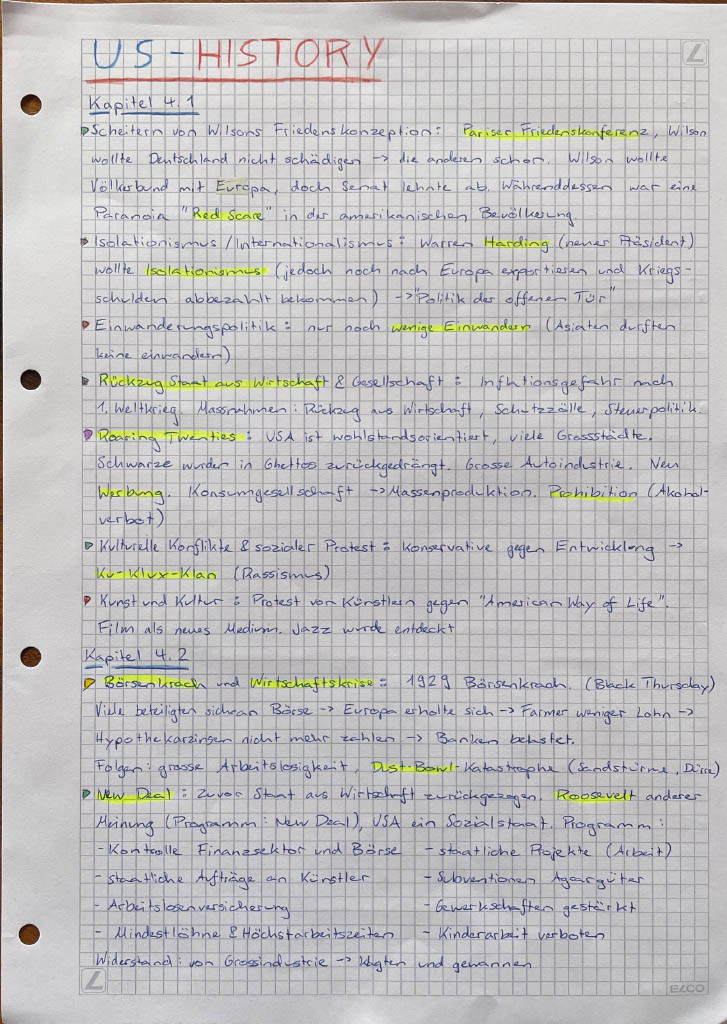 US - HISTORY
Kapitel 4.1
Scheitern von Wilsons Friedenskonzeption: Pariser Friedenskonferenz, Wilson
wollte Deutschland nicht schädigen → die anderen schon. Wilson wollte
Völkerbund mit Europa, doch Senat lehnte ab. Währenddessen war eine
Paranoia "Red Scare" in der amerikanischen Bevölkerung.
Isolationismus / Internationalismus: Warren Harding (neuer Präsident)
wollte Isolationismus (jedoch noch nach Europa exportieren und Kriegs-
schulden abbezahlt bekommen) → "Politik der offenen Tür"
Einwanderungspolitik: nur noch wenige Einwandern (Asiaten durften
keine einwandern)
Rückzug Staat aus Wirtschaft & Gesellschaft: Inflationsgefahr nach
1. Weltkrieg. Massnahmen: Rückzug aus Wirtschaft, Schutzzölle, Steuerpolitik.
Roaring Twenties: USA ist wohlstandsorientiert, viele Grossstädte.
Schwarze wurden in Ghettos zurückgedrängt. Grosse Autoindustrie. Neu
Werbung. Konsumgesellschaft → Massenproduktion. Prohibition (Akohol-
verbot)
Kulturelle Konflikte & sozialer Protest: Konservative gegen Entwicklung →
Ku-Klux-Klan (Rassismus)
Kunst und Kultur: Protest von Künstlern gegen "American Way of Life".
Film als neues Medium. Jazz wurde entdeckt
Kapitel 4.2
Börsenkrach und Wirtschaftskrise: 1929 Börsenkrach. (Black Thursday)
Viele beteiligten sich an Börse → Europa erholte sich → Farmer weniger Lohn →
Hypothekarzinsen nicht mehr zahlen → Banken belastet.
Folgen: grosse Arbeitslosigkeit, Dust-Bowl-Katastrophe (Sandstürme, Dürre)
New Deal: Zuvor Staat aus Wirtschaft zurückgezogen. Roosevelt anderer
Meinung (Programm: New Deal), USA ein Sozialstaat. Programm:
- Kontrolle Finanzsektor und Börse - staatliche Projekte (Arbeit)
- staatliche Aufträge an Künstler - Subventionen Agrargüter
- Arbeitslosenversicherung - Gewerkschaften gestärkt
- Mindestlöhne & Höchstarbeitszeiten - Kinderarbeit verboten
Widerstand: von Grossindustrie → klagten und gewannen
ELCO